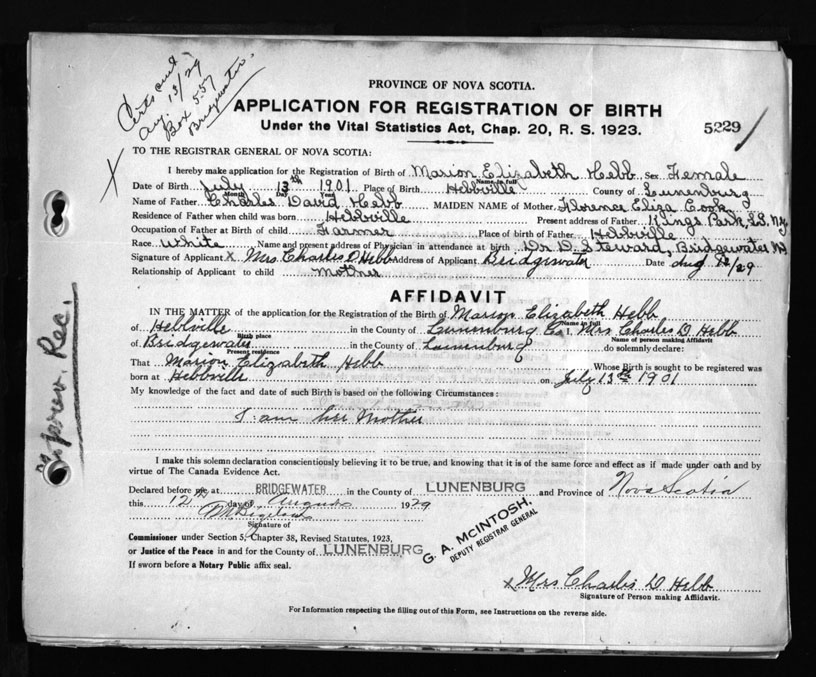 Certs sent
Aug 13/29
Box 557
Bridgewater.
PROVINCE OF NOVA SCOTIA.
APPLICATION FOR REGISTRATION OF BIRTH
Under the Vital Statistics Act, Chap. 20, R. S. 1923.
5229
X
TO THE REGISTRAR GENERAL OF NOVA SCOTIA:
I hereby make application for the Registration of Birth of Marion Elizabeth Hebb Sex Female
Name in full
Date of Birth July 13th 1901 Place of Birth Hebbville County of Lunenburg
Month Day Year
Name of Father Charles David Hebb MAIDEN NAME of Mother Florence Eliza Cook
Residence of Father when child was born Hebbville Present address of Father Kings Park, L.S. N.Y.
Occupation of Father at Birth of child Farmer Place of birth of Father Hebbville
Race White Name and present address of Physician in attendance at birth Dr. D. Steward, Bridgewater NS
Signature of Applicant X Mrs Charles D Hebb Address of Applicant Bridgewater Date Aug 12/29
Relationship of Applicant to child mother
AFFIDAVIT
IN THE MATTER of the application for the Registration of the Birth of Marion Elizabeth Hebb
Name in full
of Hebbville in the County of Lunenburg Co. I, Mrs Charles D. Hebb
Birth place Name of person making Affidavit
of Bridgewater in the County of Lunenburg do solemnly declare:
Present residence
That Marion Elizabeth Hebb Whose Birth is sought to be registered was
born at Hebbville on July 13th 1901
My knowledge of the fact and date of such Birth is based on the following Circumstances:
I am her Mother
I make this solemn declaration conscientiously believing it to be true, and knowing that it is of the same force and effect as if made under oath and by
virtue of The Canada Evidence Act.
Declared before me at BRIDGEWATER in the County of LUNENBURG and Province of Nova Scotia
this 12th day of August 1929
Signature of
Commissioner under Section 5, Chapter 38, Revised Statutes, 1923,
or Justice of the Peace in and for the County of LUNENBURG
If sworn before a Notary Public affix seal.
G. A. McINTOSH,
DEPUTY REGISTRAR GENERAL
x Mrs Charles D Hebb
Signature of Person making Affidavit.
For Information respecting the filling out of this Form, see Instructions on the reverse side.
Rec.